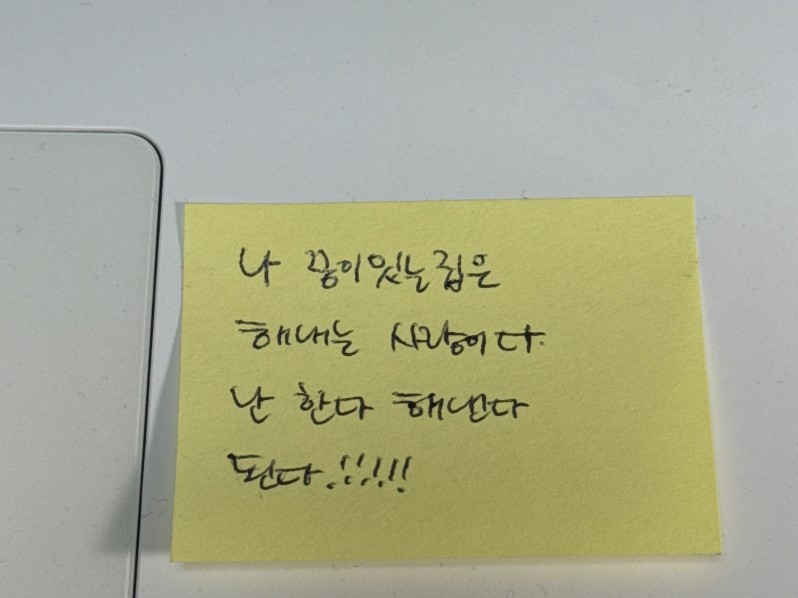 나 꿈이있는집은
해내는 사람이다.
난 한다 해낸다
된다!!!!!